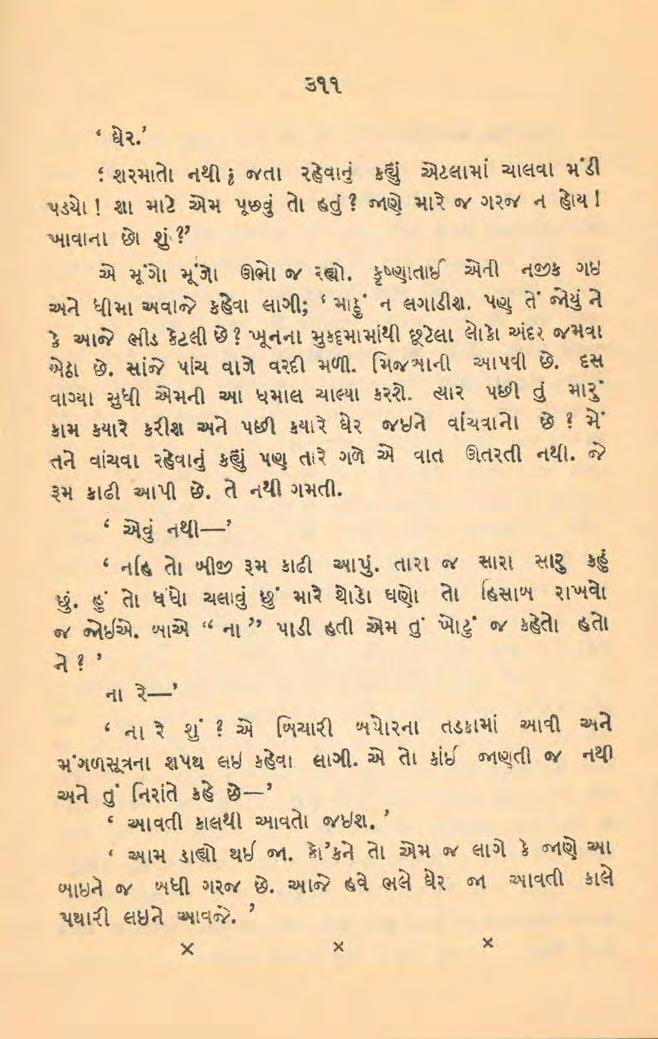 ૩૧૧
‘ ઘેર.’
‘ શરમાતો નથી; જતા રહેવાનું કહ્યું એટલામાં ચાલવા મંડી
પડયો ! શા માટે એમ પૂછવું તો હતું ? જાણે મારે જ ગરજ ન હોય !
ખાવાના છો શું ?’
એ મૂંગો મૂંગો ઊભો જ રહ્યો. કૃષ્ણાતાઈ એની નજીક ગઇ
અને ધીમા અવાજે કહેવા લાગી; ‘ માઠું ન લગાડીશ. પણ તેં જોયું ને
કે આજે ભીડ કેટલી છે ? ખૂનના મુકદ્દમામાંથી છૂટેલા લોકો અંદર જમવા
બેઠા છે. સાંજે પાંચ વાગે વરદી મળી. મિજબાની આપવી છે. દસ
વાગ્યા સુધી એમની આ ધમાલ ચાલ્યા કરશે. ત્યાર પછી તું મારું
કામ કયારે કરીશ અને પછી કયારે ઘેર જઇને વાંચવાનો છે ? મેં
તને વાંચવા રહેવાનું કહ્યું પણ તારે ગળે એ વાત ઊતરતી નથી. જે
રૂમ કાઢી આપી છે. તે નથી ગમતી.
‘ એવું નથી—’
‘ નહિ તો બીજી રૂમ કાઢી આપું. તારા જ સારા સારુ કહું
છું. હું તો ધંધો ચલાવું છું મારે થોડો ઘણો તો હિસાબ રાખવો
જ જોઈએ. બાએ “ ના ” પાડી હતી એમ તું ખોટું જ કહેતો હતો
ને ? ’
ના રે—’
‘ ના રે શું ? એ બિચારી બપોરના તડકામાં આવી અને
મંગળસૂત્રના શપથ લઇ કહેવા લાગી. એ તો કાંઈ જાણતી જ નથી
અને તું નિરાંતે કહે છે—’
‘ આવતી કાલથી આવતો જઇશ. ’
‘ આમ ડાહ્યો થઈ જા. કો’કને તો એમ જ લાગે કે જાણે આ
બાઇને જ બધી ગરજ છે. આજે હવે ભલે ઘેર જા આવતી કાલે
પથારી લઇને આવજે. ’
× × ×